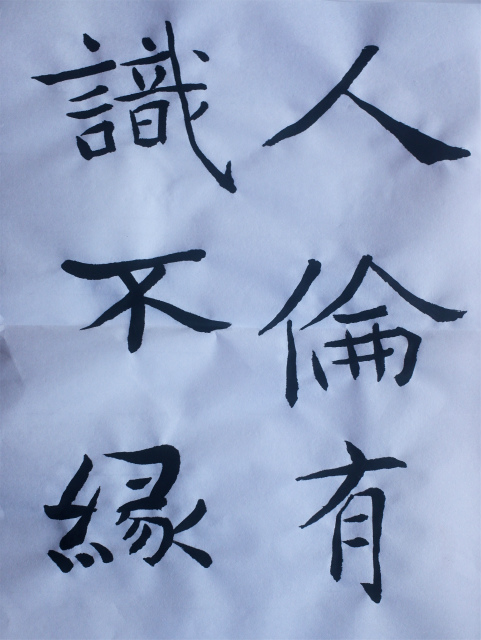 人倫有
識不緣